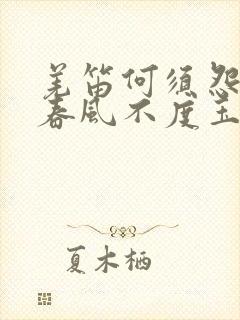 羌笛何须怨
春风不度玉
夏木栖